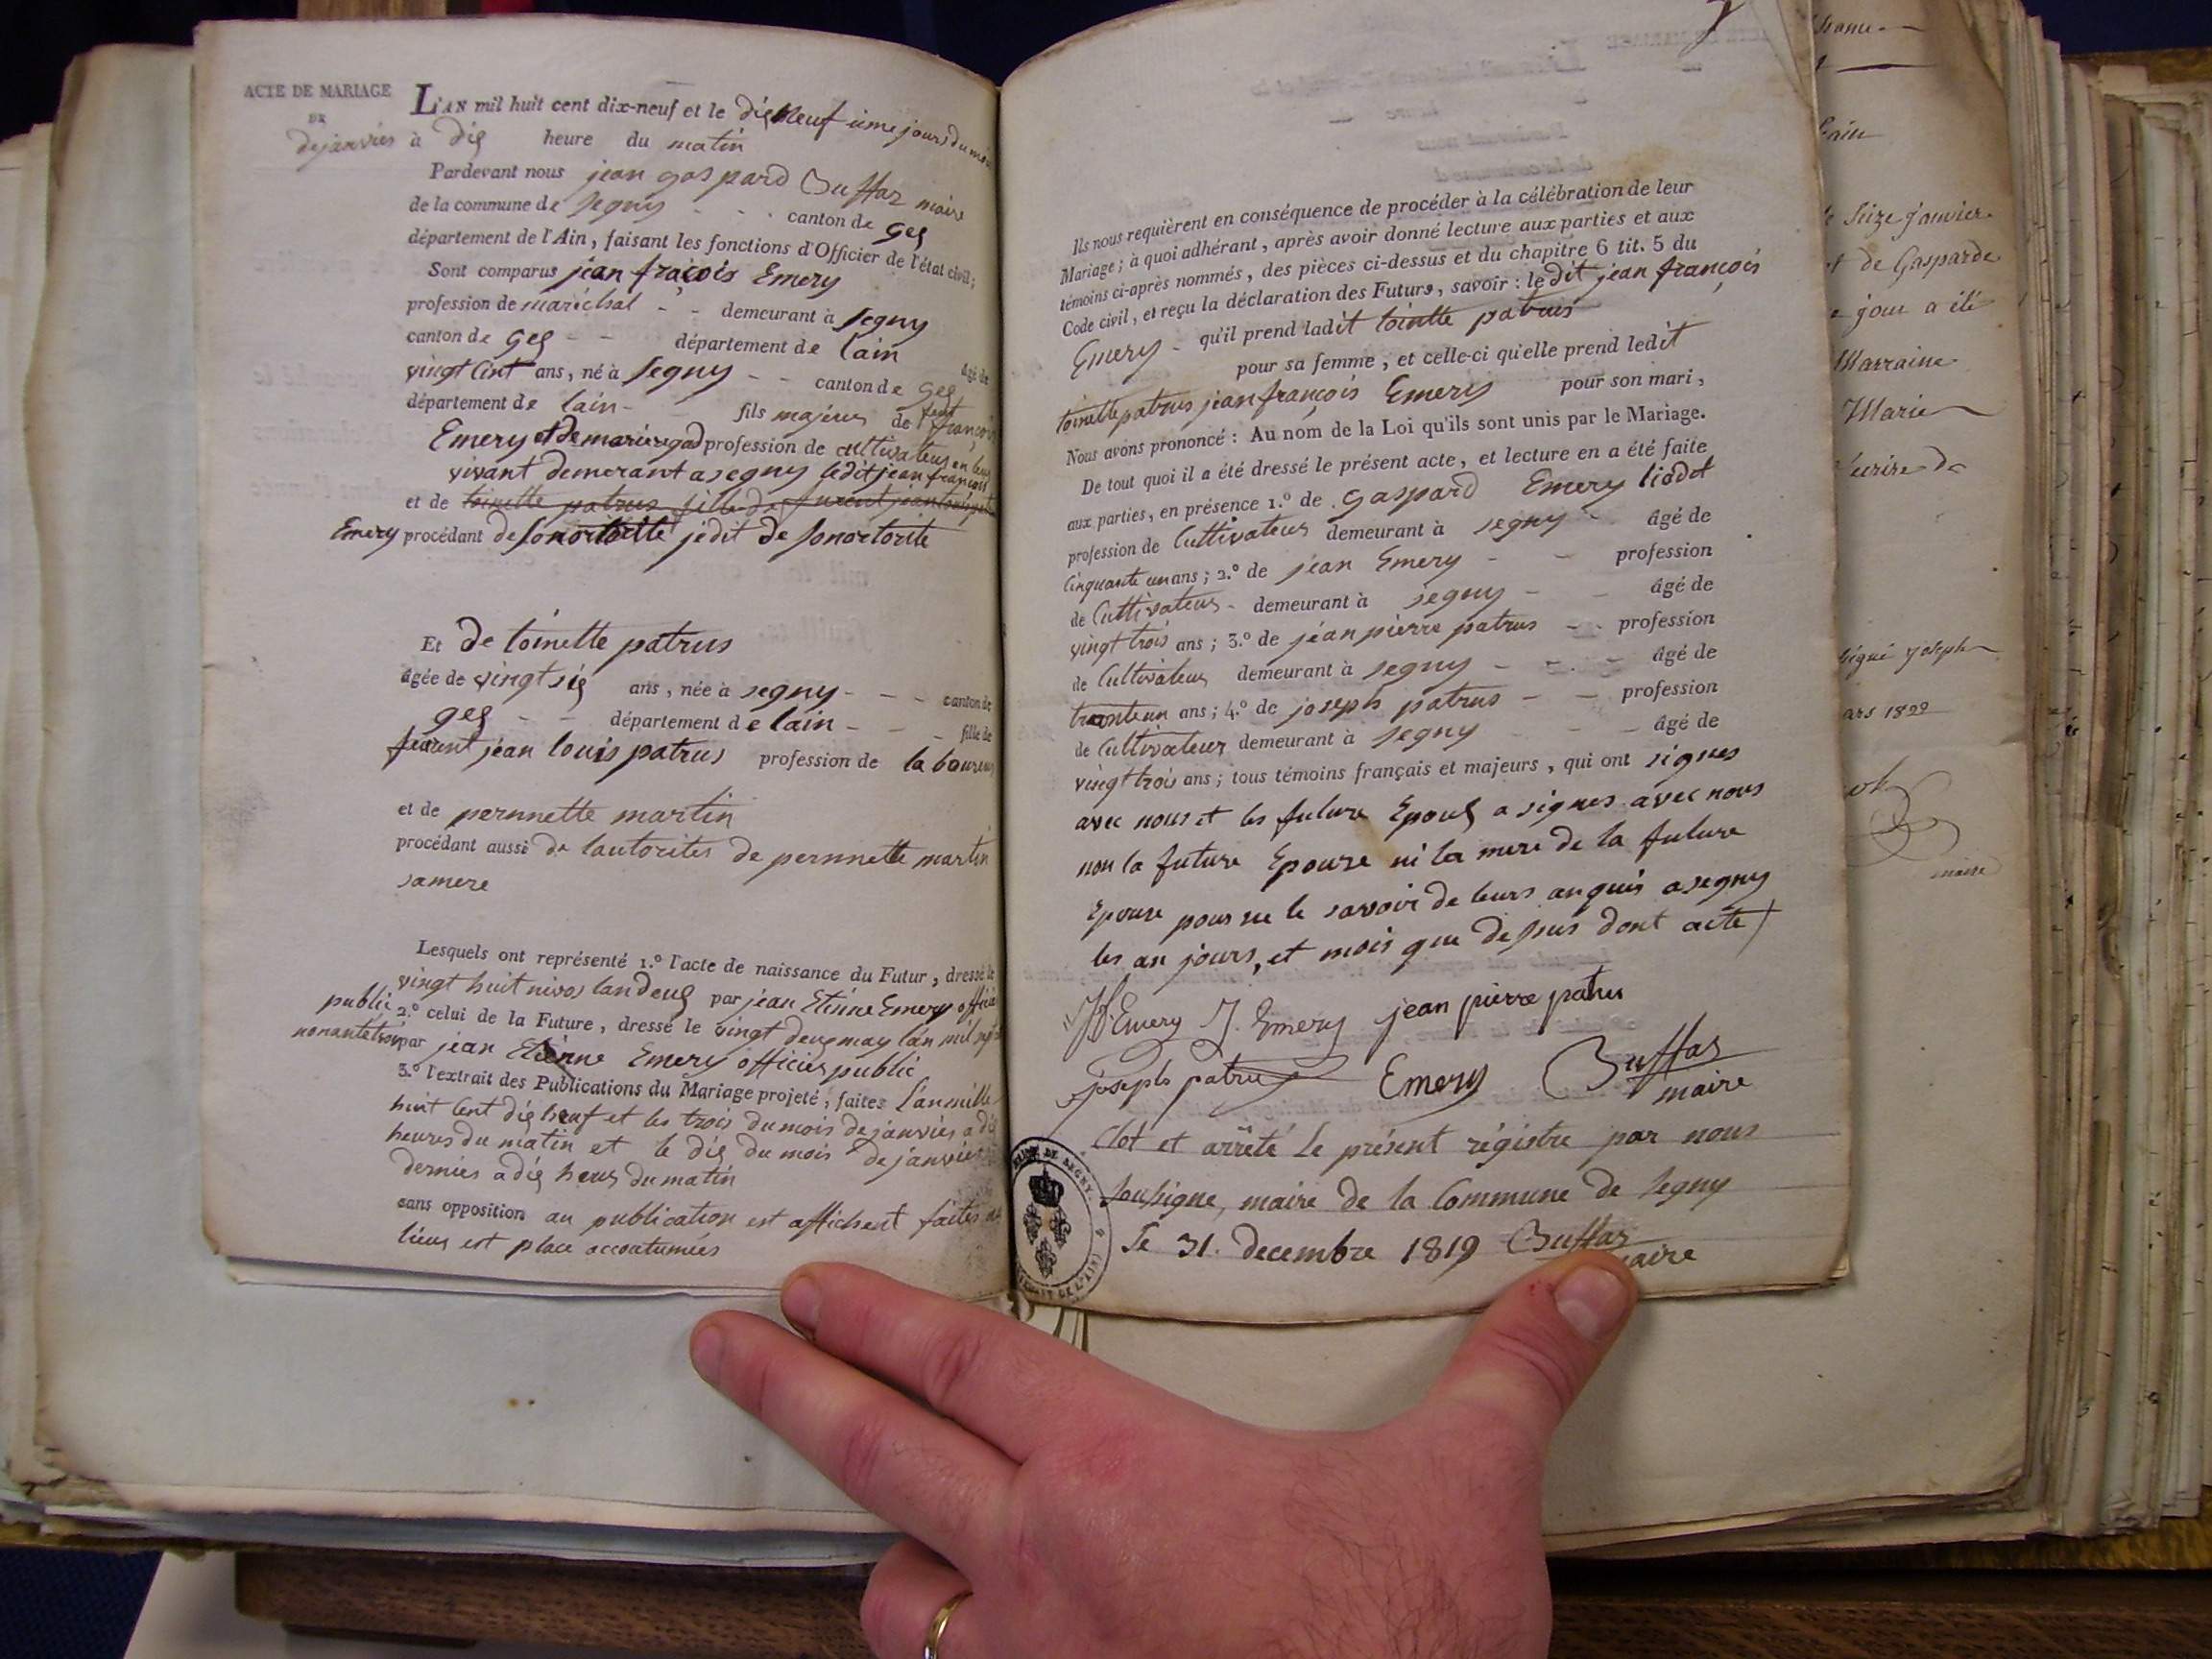 ACTE DE MARIAGE
DE
L'AN mil huit cent dix-neuf et le dixneuf ieme jours du mois
de janvier à dix heure du matin
Pardevant nous jean gaspard Buffaz maire
de la commune de segny canton de gex
département de l'Ain, faisant les fonctions d'Officier de l'état civil;
Sont comparus jean fraçois Emery
profession de maréchal demeurant à segny
canton de gex département de lain âgé de
vingt cint ans, né à segny canton de gex
département de lain fils majeur de feut françois
Emery et de marie profession de cultivateur en leur
vivant demerant a segny ledit jean françois
et de toinette patrus fille de furent jean louis
Emery procédant de jedit de sonortorite
Et de toinette patrus
âgée de vingt six ans, née à segny canton de
gex département de lain fille de
feurent jean louis patrus profession de laboureur
et de pernnette martin
procédant aussi de lautorites de pernnette martin
samere
Lesquels ont représenté 1.º l'acte de naissance du Futur, dressé le
vingt huit nivos landeux par jean Etiénne Emery officié
public 2.º celui de la Future, dressé le vingt deux may lan mil sept
nonantetrois par jean Etiénne Emery officier public
3.º l'extrait des Publications du Mariage projeté, faites l'an mille
huit cent dix neuf et les trois du mois de janvier a dix
heures du matin et le dix du mois de janvier
dernier a dix heurs du matin
sans opposition au publication est affichent faites
lieux est place accoutumées
Ils nous requièrent en conséquence de procéder à la célébration de leur
Mariage; à quoi adhérant, après avoir donné lecture aux parties et aux
témoins ci-après nommés, des pièces ci-dessus et du chapitre 6 tit. 5 du
Code civil, et reçu la déclaration des Futurs, savoir: le dit jean françois
Emery qu'il prend ladit toinette patrus
pour sa femme, et celle-ci qu'elle prend ledit
toinette patrus jean françois Emery pour son mari,
Nous avons prononcé: Au nom de la Loi qu'ils sont unis par le Mariage.
De tout quoi il a été dressé le présent acte, et lecture en a été faite
aux parties, en présence 1.º de gaspard Emery liodet
profession de Cultivateur demeurant à segny âgé de
cinquante un ans; 2.º de jean Emery profession
de Cultivateur demeurant à segny âgé de
vingt trois ans; 3.º de jean pierre patrus profession
de Cultivateur demeurant à segny âgé de
tranteun ans; 4.º de joseph patrus profession
de Cultivateur demeurant à segny âgé de
vingt trois ans; tous témoins français et majeurs, qui ont signes
avec nous et les future Epoux a signes avec nous
non la future Epouse ni la mere de la future
Epouse pour ne le savoir de leurs anquis a segny
les an jours, et mois que dessus dont acte
Jf. Emery J. Emery jean pierre patrus
joseph patrus Emery Buffaz
maire
Clot et arrêté le présent régistre par nous
soussigne, maire de la Commune de segny
Le 31. decembre 1819 Buffaz
maire
MAIRIE DE SEGNY
DE L'AIN
seize janvier
de Gasparde
jour a été
Marraine
Marie
signé joseph
mars 1822
maire